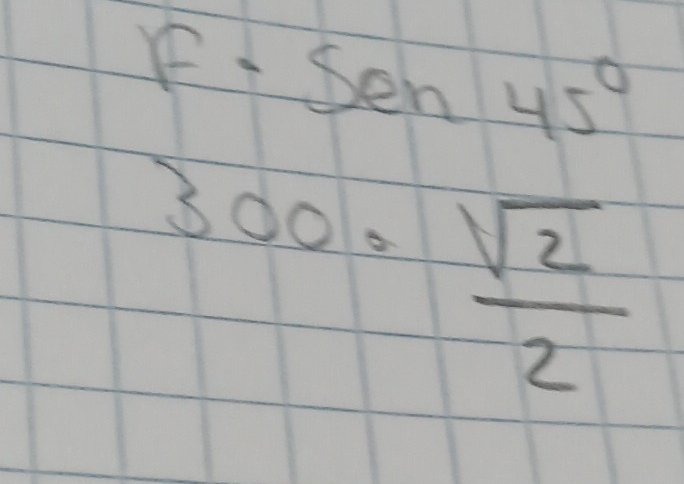 F · Sen 45°
300 · √2/2